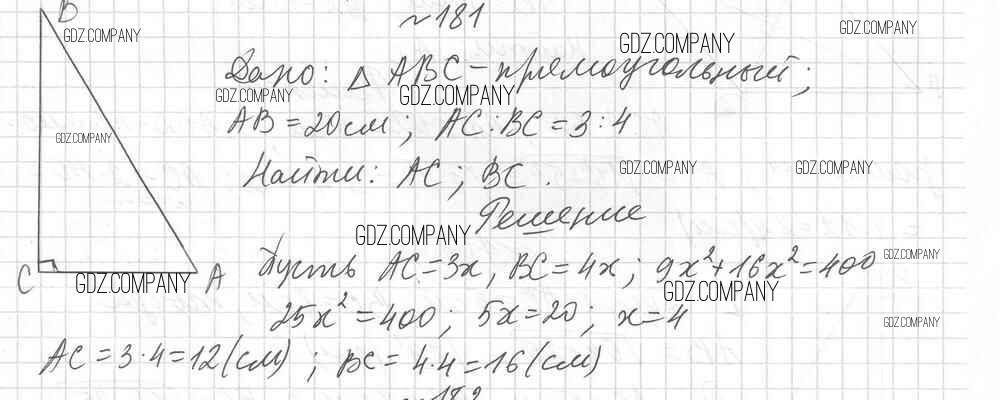 ~181
B
Дано: △ ABC - прямоугольный;
AB = 20 см; AC:BC = 3:4
Найти: AC; BC.
Решение
C A Пусть AC = 3x, BC = 4x; 9x² + 16x² = 400
25x² = 400; 5x = 20; x = 4
AC = 3·4 = 12 (см); BC = 4·4 = 16 (см)
GDZ.COMPANY
GDZ.COMPANY
GDZ.COMPANY
GDZ.COMPANY
GDZ.COMPANY
GDZ.COMPANY
GDZ.COMPANY
GDZ.COMPANY
GDZ.COMPANY
GDZ.COMPANY
GDZ.COMPANY
GDZ.COMPANY
GDZ.COMPANY